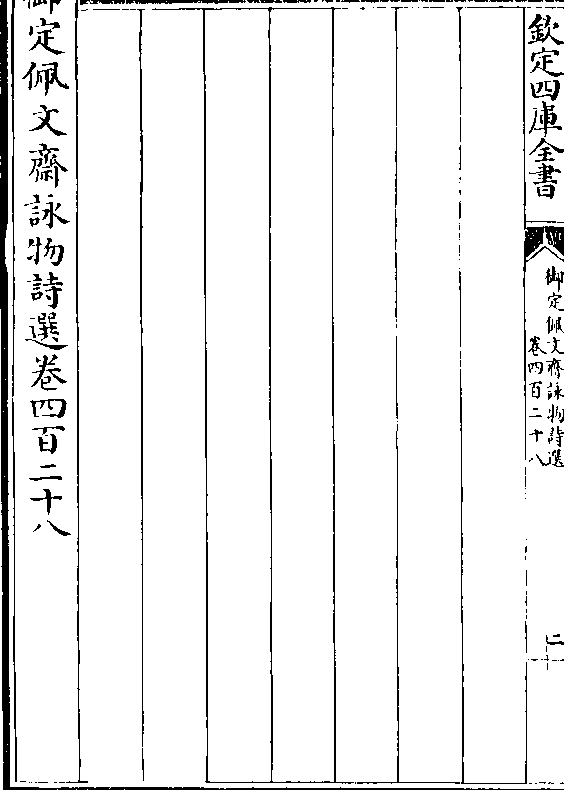 欽定四庫全書
御定佩文齋詠物詩選
卷四百二十八
二
御定佩文齋詠物詩選卷四百二十八